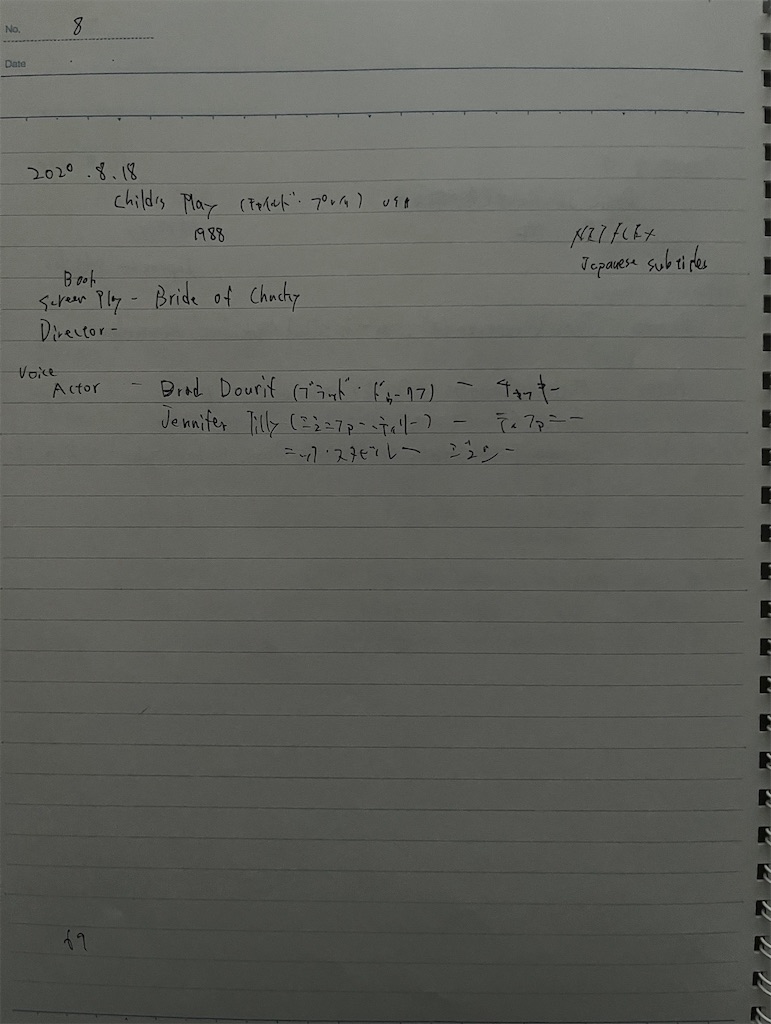 No. 8
Date
2020.8.18
Child's Play (チャイルド・プレイ) USA
1988
NETFLEX
Japanese subtitles
Book
Screen Play - Bride of Chucky
Director -
Voice
Actor - Brad Dourif (ブラッド・ドゥーリフ) - チャッキー
Jennifer Tilly (ジェニファー・ティリー) - ティファニー
ニック・スタビル - ジェシー
69